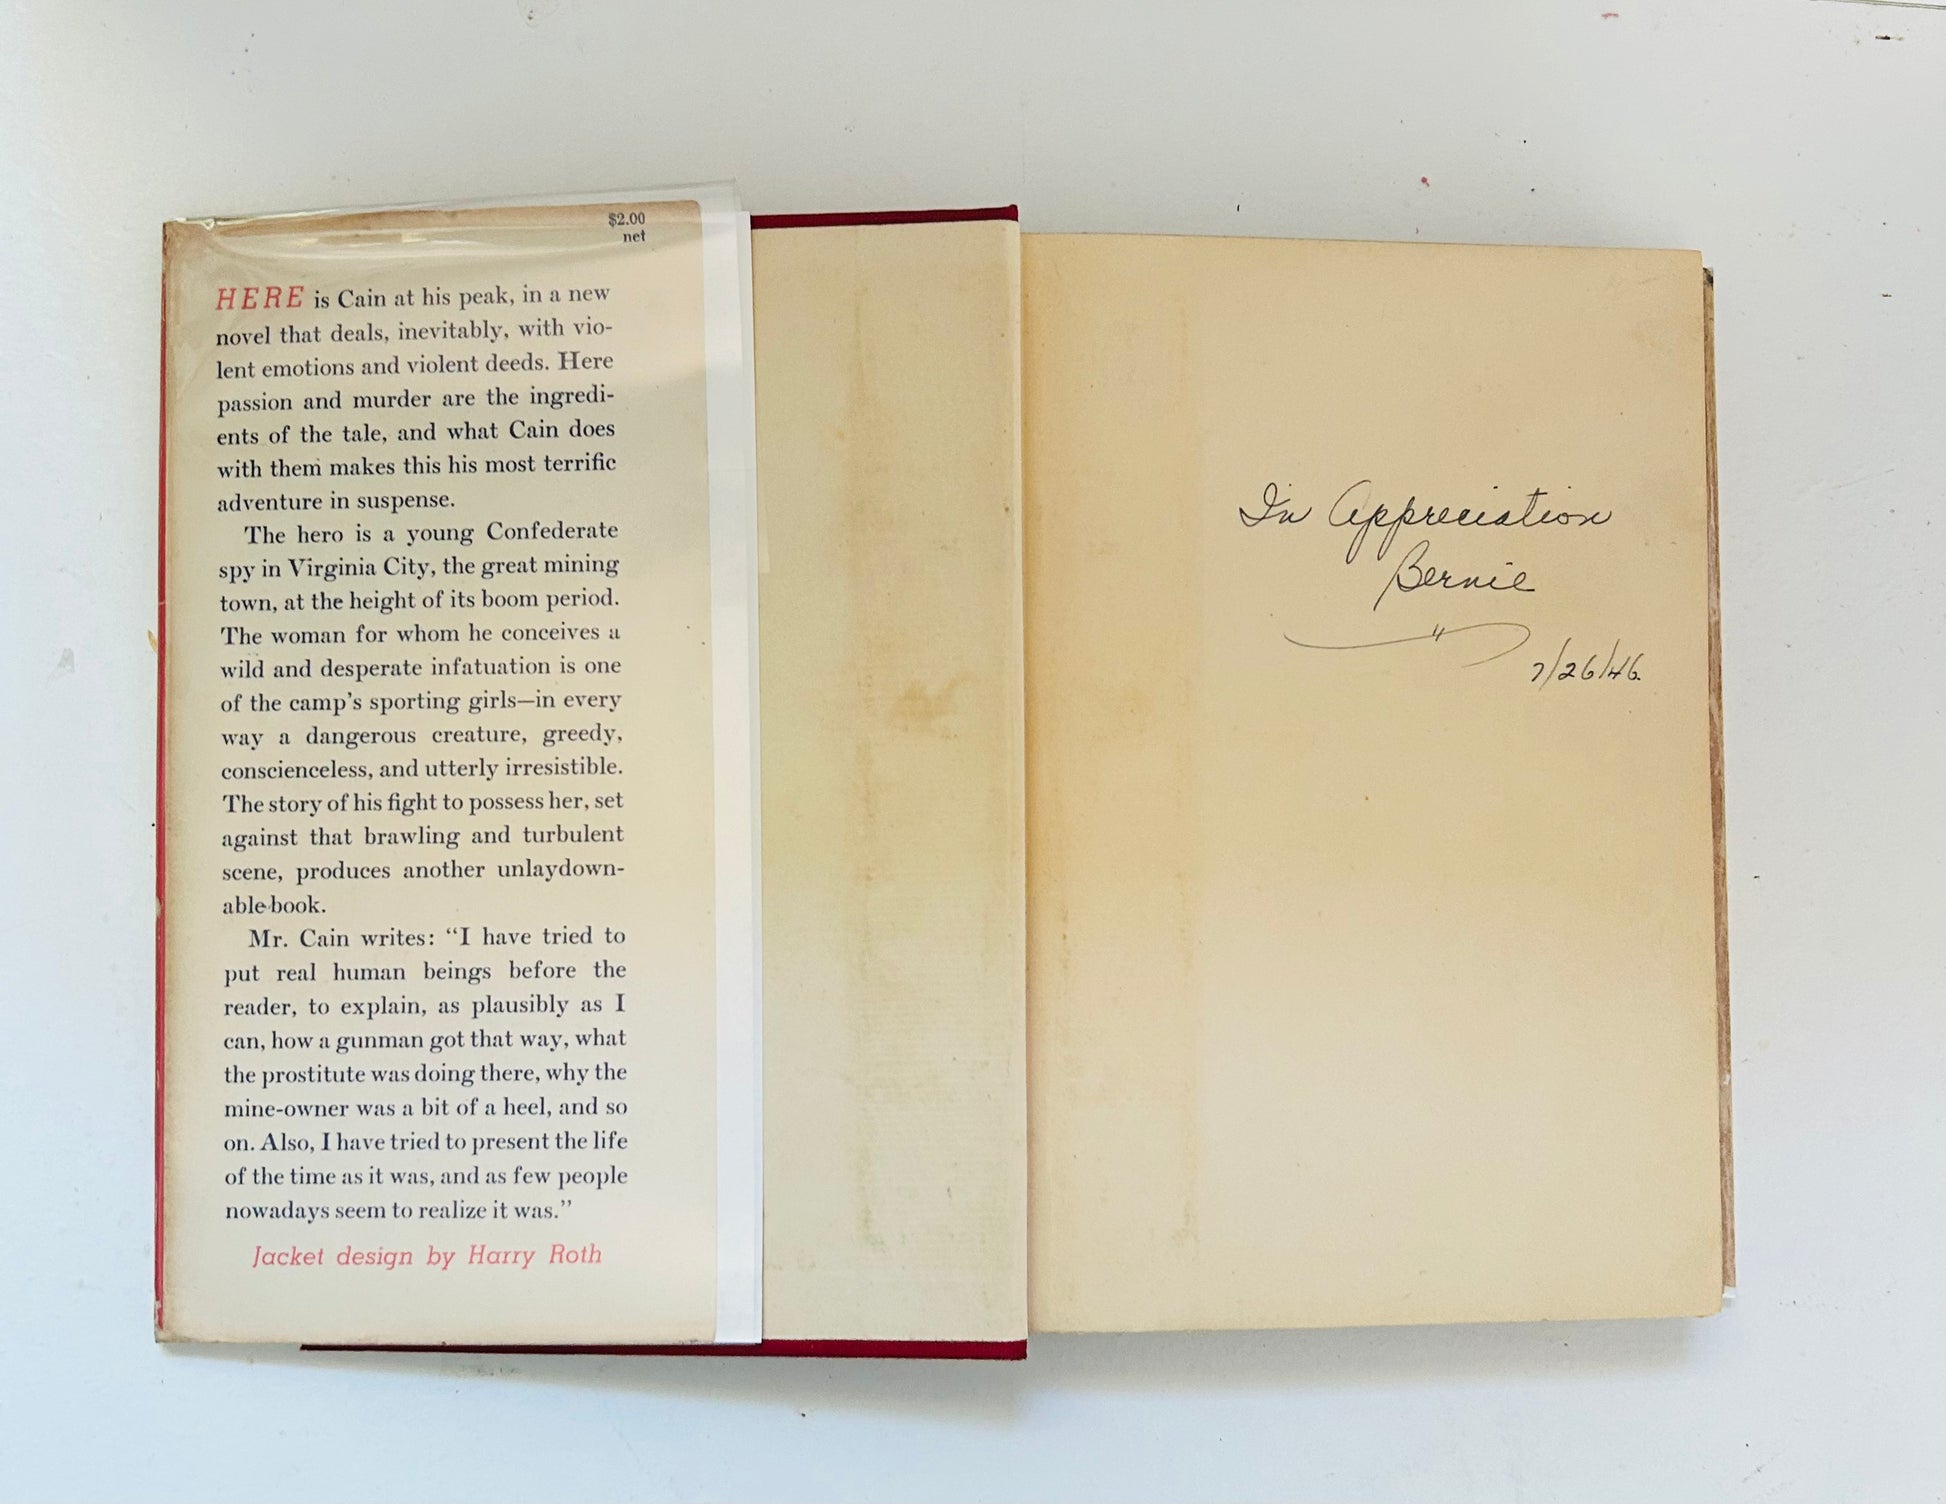 $2.00
net
HERE is Cain at his peak, in a new
novel that deals, inevitably, with vio-
lent emotions and violent deeds. Here
passion and murder are the ingredi-
ents of the tale, and what Cain does
with them makes this his most terrific
adventure in suspense.
The hero is a young Confederate
spy in Virginia City, the great mining
town, at the height of its boom period.
The woman for whom he conceives a
wild and desperate infatuation is one
of the camp's sporting girls—in every
way a dangerous creature, greedy,
conscienceless, and utterly irresistible.
The story of his fight to possess her, set
against that brawling and turbulent
scene, produces another unlaydown-
able book.
Mr. Cain writes: “I have tried to
put real human beings before the
reader, to explain, as plausibly as I
can, how a gunman got that way, what
the prostitute was doing there, why the
mine-owner was a bit of a heel, and so
on. Also, I have tried to present the life
of the time as it was, and as few people
nowadays seem to realize it was.”
Jacket design by Harry Roth
In Appreciation
Bernie
7/26/46